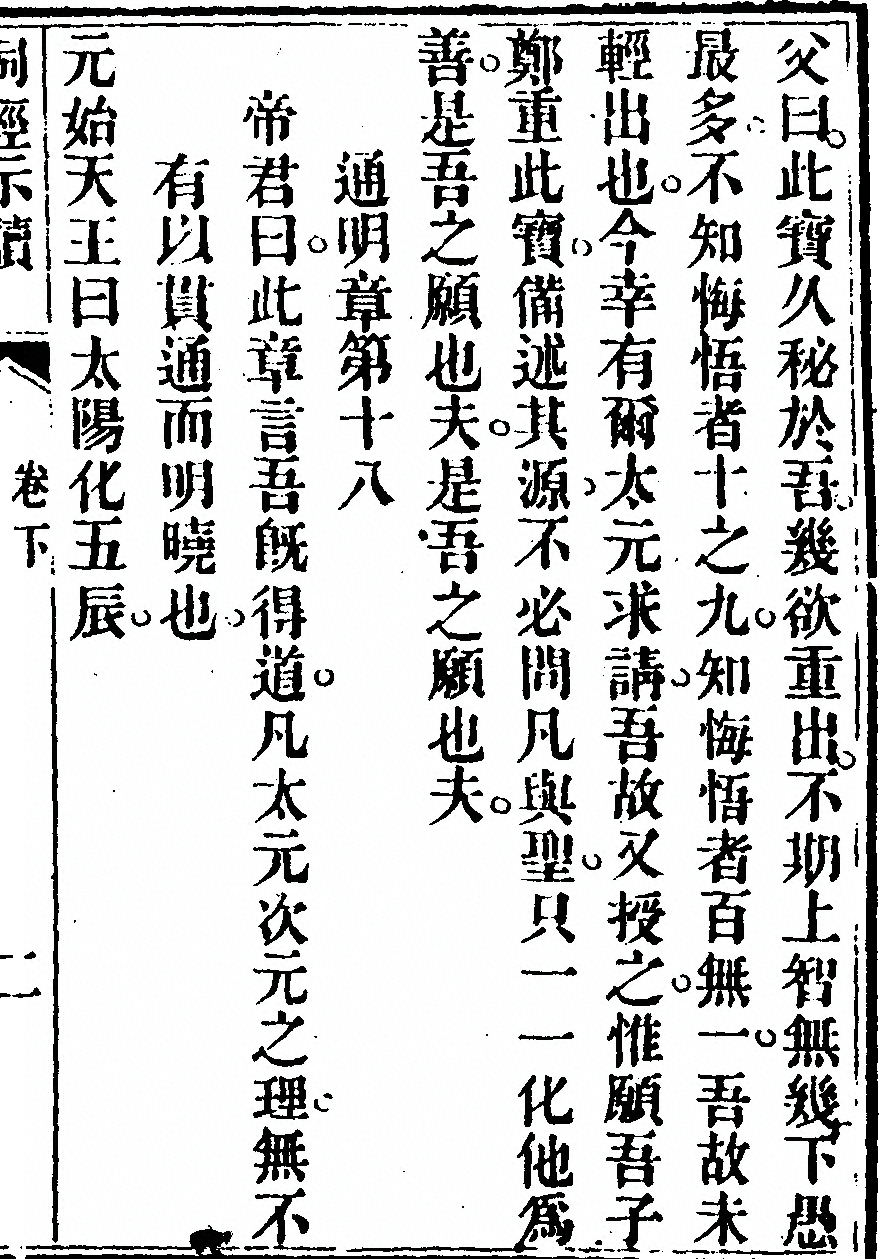 父曰此寶久秘於吾幾欲重出不期上智無幾下愚
最多不知悔悟者十之九知悔悟者百無一吾故未
輕出也今幸有爾太元求請吾故又授之惟願吾子
鄭重此寶備述其源不必問凡與聖只一一化他為
善是吾之願也夫是吾之願也夫
通明章第十八
帝君曰此章言吾既得道凡太元次元之理無不
有以貫通而明曉也
元始天王曰太陽化五辰
洞經示讀
卷下
二